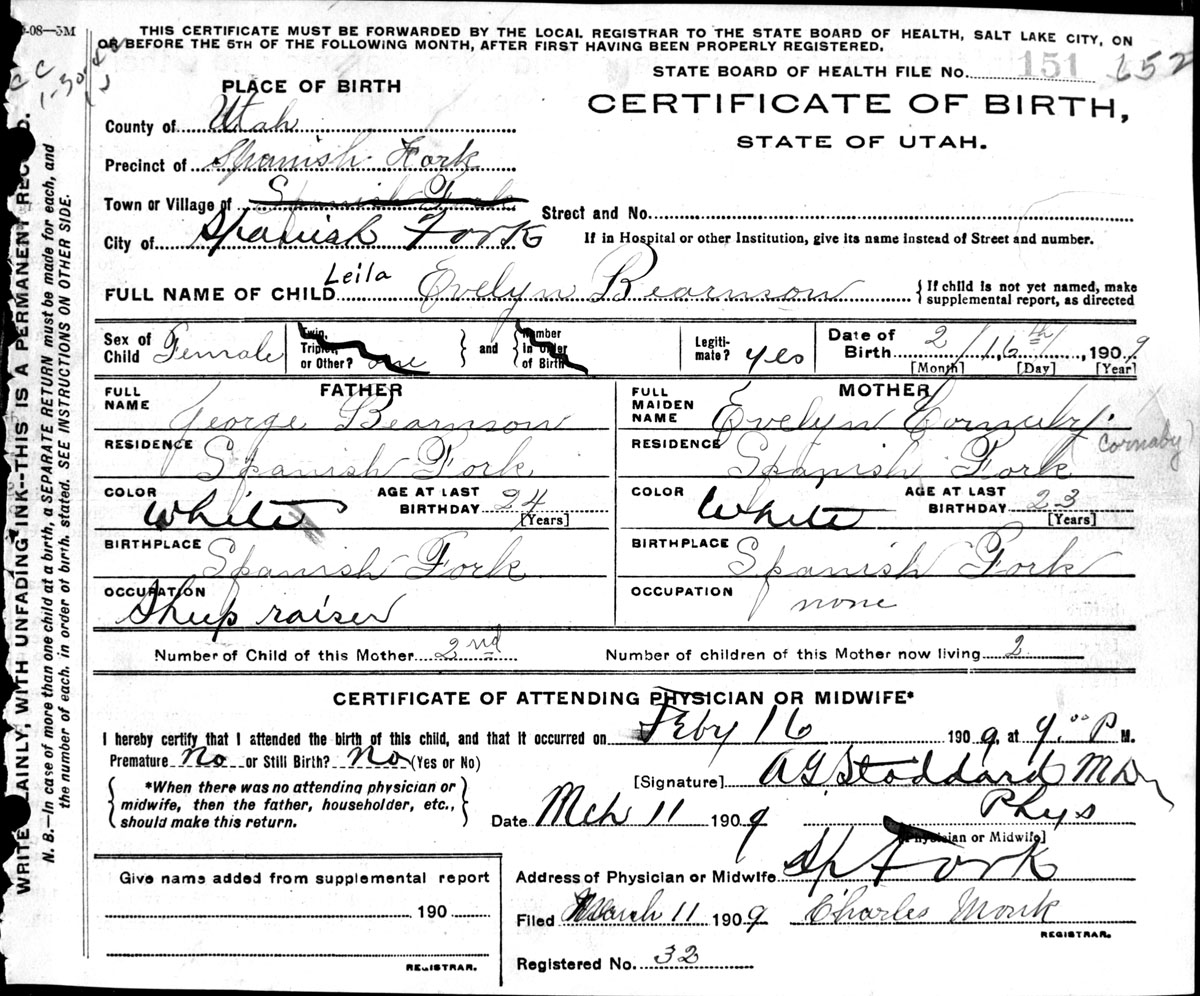 -08—3M
THIS CERTIFICATE MUST BE FORWARDED BY THE LOCAL REGISTRAR TO THE STATE BOARD OF HEALTH, SALT LAKE CITY, ON
OR BEFORE THE 5TH OF THE FOLLOWING MONTH, AFTER FIRST HAVING BEEN PROPERLY REGISTERED.
STATE BOARD OF HEALTH FILE No. 151 652
CC
1-30
PLACE OF BIRTH
CERTIFICATE OF BIRTH,
STATE OF UTAH.
County of Utah
Precinct of Spanish Fork
Town or Village of Spanish Fork
Street and No.
City of Spanish Fork
If in Hospital or other Institution, give its name instead of Street and number.
FULL NAME OF CHILD Leila Evelyn Bearnson
{ If child is not yet named, make
supplemental report, as directed
Sex of
Child Female
Twin,
Triplet,
or Other? one
} and {
Number
In Order
of Birth
Legiti-
mate? yes
Date of
Birth 2/16th/, 1909
[Month] [Day] [Year]
FATHER
FULL
NAME George Bearnson
RESIDENCE Spanish Fork
COLOR White
AGE AT LAST
BIRTHDAY 24
[Years]
BIRTHPLACE Spanish Fork
OCCUPATION Sheep raiser
MOTHER
FULL
MAIDEN
NAME Evelyn Cornaby
Cornaby)
RESIDENCE Spanish Fork
COLOR White
AGE AT LAST
BIRTHDAY 23
[Years]
BIRTHPLACE Spanish Fork
OCCUPATION none
Number of Child of this Mother 2nd
Number of children of this Mother now living 2
CERTIFICATE OF ATTENDING PHYSICIAN OR MIDWIFE*
I hereby certify that I attended the birth of this child, and that it occurred on Feby 16 1909, at 9.00 P M.
Premature No or Still Birth? No (Yes or No)
[Signature] AG Stoddard MD
{ *When there was no attending physician or
midwife, then the father, householder, etc.,
should make this return. }
Date Mch 11 1909 Phys
[Physician or Midwife]
Address of Physician or Midwife Sp Fork
Filed March 11 1909 Charles Monk
REGISTRAR.
Registered No. 32
Give name added from supplemental report
190
REGISTRAR.
WRITE AINLY, WITH UNFADING INK--THIS IS A PERMANENT RECORD.
N. B.—In case of more than one child at a birth, a SEPARATE RETURN must be made for each, and
the number of each, in order of birth, stated. SEE INSTRUCTIONS ON OTHER SIDE.